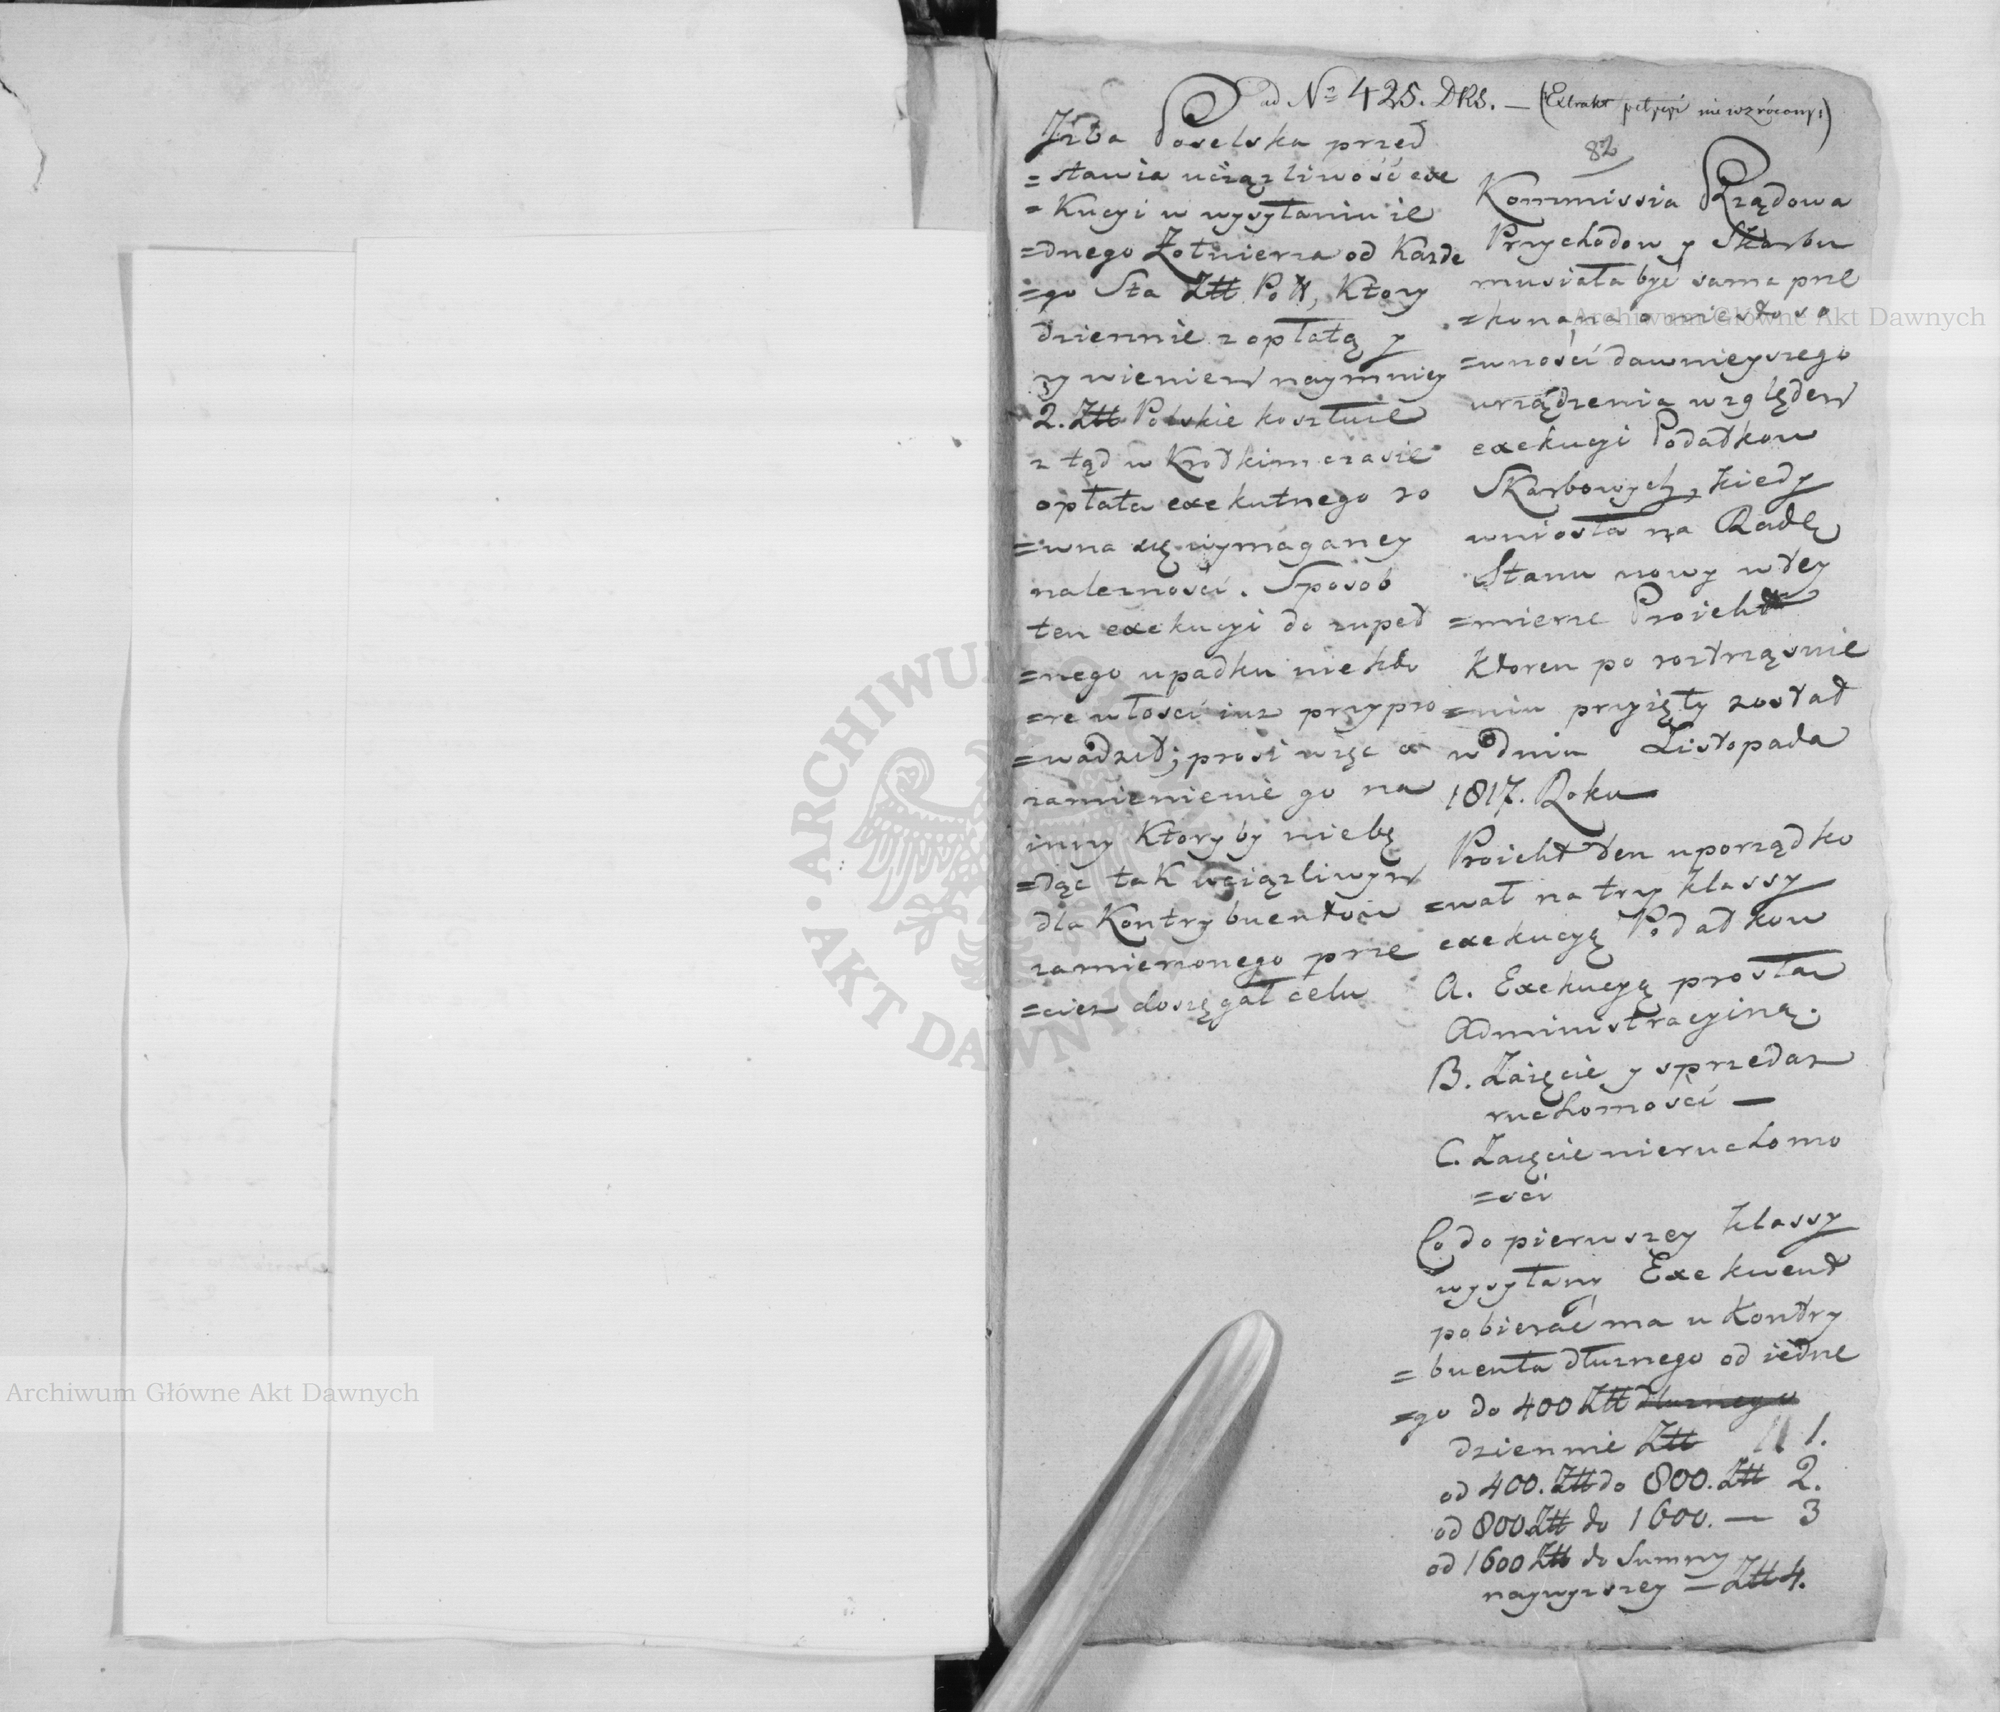 ad Nº 425. DRS. — (Extrakt nie wzrócony.)
82
Jzba Poselska przed
=stawia uciązliwość exe
=kucyi w wysyłaniu ie
=dnego Zołnierza od Kazde
=go Sta Ztt Pol, Ktory
dziennie z opłatą y
zywieniem naymniey
2. Ztt Polskie kosztuie
z tąd w Krotkim czasie
opłata exekutnego ro
=wna się wymaganey
nalezności. Sposob
ten exekucyi do zupeł
=nego upadku niekto
=re włości iuz przypro
=wadził; prosi więc o
zamienienie go na
inny Ktoryby niebę
=dąc tak uciązliwym
dla Kontrybuentow
zamierzonego prze
=ciez dosięgał celu
Kommissia Rządowa
Przychodow y Skarbu
musiała być sama prze
=konana o niestoso
=wności dawnieyszego
urządzenia względem
exekucyi Podatkow
Skarbowych, kiedy
wniosła na Radę
Stanu nowy w tey
=mierze Proiekt
ktoren po roztrząsnie
=niu przyięty został
w dniu Listopada
1817. Roku
Proiekt ten uporządko
=wał na trzy klassy
exekucyą Podatkow
A. Exekucyą prosta
Administracyiną.
B. Zaięcie y sprzedaz
ruchomości —
C. Zaięcie nieruchomo
=sci
Co do pierwszey klassy
wysyłany Exekwent
pobierać ma u Kontry
=buenta dłuznego od iedne
=go do 400 Ztt dłuznego
dziennie Ztt 1.
od 400. Ztt do 800. Ztt 2.
od 800 Ztt do 1600. — 3
od 1600 Ztt do Summy
naywyzszey — Ztt 4.
Archiwum Główne Akt Dawnych
Archiwum Główne Akt Dawnych
ARCHIWUM
AKT DAWNYCH